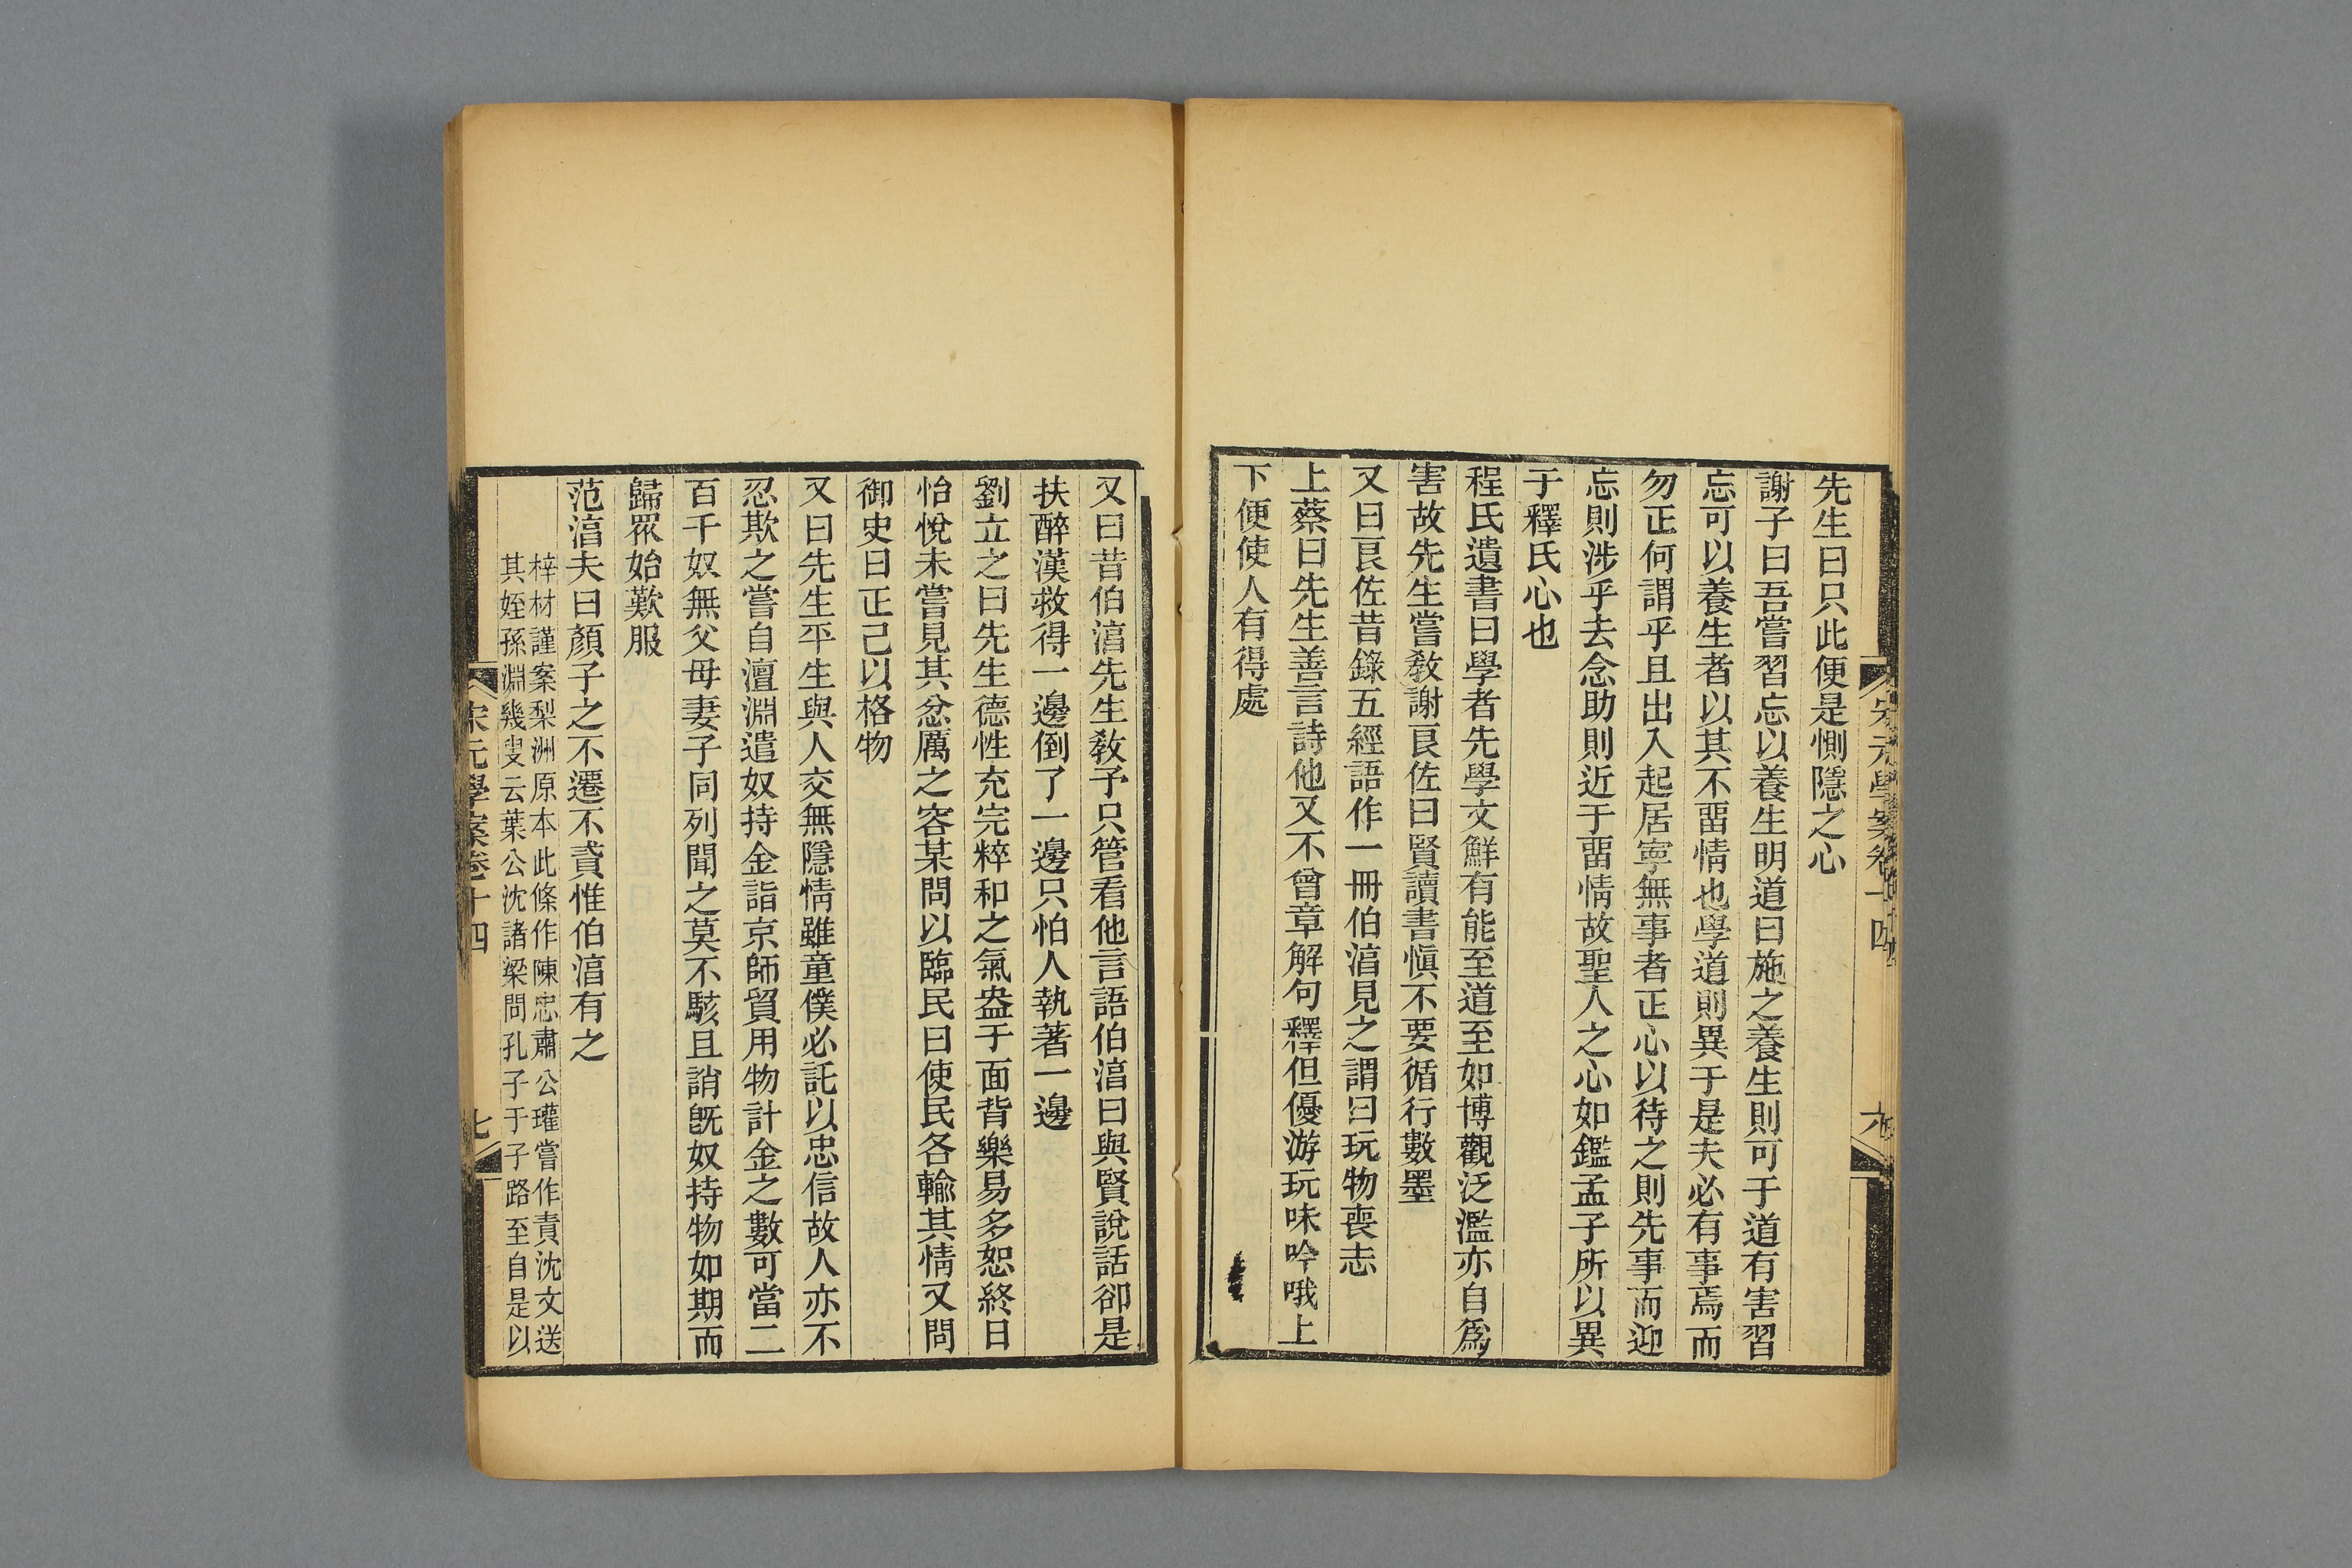 宋元學案卷十四
六
先生曰只此便是惻隱之心
謝子曰吾嘗習忘以養生明道曰施之養生則可于道有害習
忘可以養生者以其不畱情也學道則異于是夫必有事焉而
勿正何謂乎且出入起居寧無事者正心以待之則先事而迎
忘則涉乎去念助則近于畱情故聖人之心如鑑孟子所以異
于釋氏心也
程氏遺書曰學者先學文鮮有能至道至如博觀泛濫亦自爲
害故先生嘗敎謝良佐曰賢讀書愼不要循行數墨
又曰良佐昔錄五經語作一冊伯湻見之謂曰玩物喪志
上蔡曰先生善言詩他又不曾章解句釋但優游玩味吟哦上
下便使人有得處
又曰昔伯湻先生敎予只管看他言語伯湻曰與賢說話卻是
扶醉漢救得一邊倒了一邊只怕人執著一邊
劉立之曰先生德性充完粹和之氣盎于面背樂易多恕終日
怡悅未嘗見其忿厲之容某問以臨民曰使民各輸其情又問
御史曰正己以格物
又曰先生平生與人交無隱情雖童僕必託以忠信故人亦不
忍欺之嘗自澶淵遣奴持金詣京師貿用物計金之數可當二
百千奴無父母妻子同列聞之莫不駭且誚旣奴持物如期而
歸眾始歎服
范湻夫曰顏子之不遷不貳惟伯湻有之
梓材謹案梨洲原本此條作陳忠肅公瓘嘗作責沈文送
其姪孫淵幾叟云葉公沈諸梁問孔子于子路至自是以
宋元學案卷十四
七